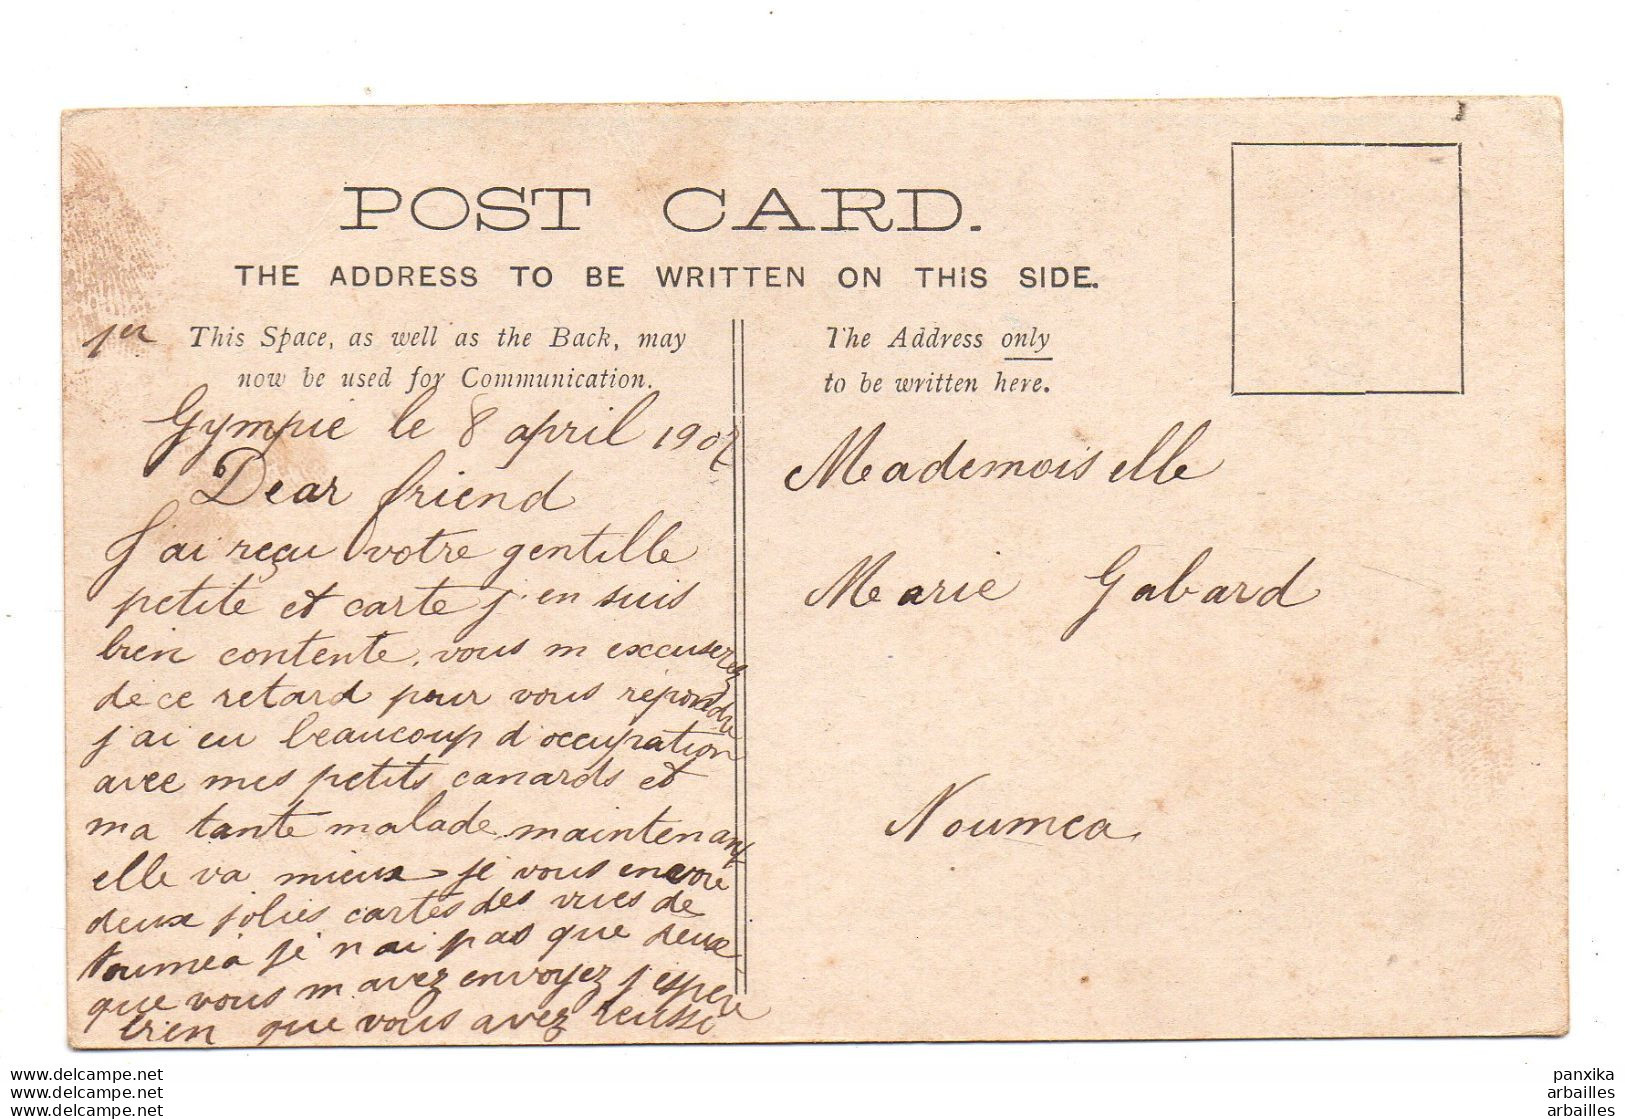 POST CARD.
THE ADDRESS TO BE WRITTEN ON THIS SIDE.
1er
This Space, as well as the Back, may
now be used for Communication.
Gympie le 8 april 1907
Dear friend
J'ai reçu votre gentille
petite et carte j'en suis
bien contente, vous m excuserez
de ce retard pour vous répondre
j'ai eu beaucoup d'occupation
avec mes petits canards et
ma tante malade maintenant
elle va mieux je vous envoie
deux jolies cartes des vues de
Noumea je n ai pas que deux
que vous m avez envoyez j espere
bien que vous avez reussi
The Address only
to be written here.
Mademoiselle
Marie Gabard
Noumea
www.delcampe.net
www.delcampe.net
www.delcampe.net
panxika
arbailles
arbailles